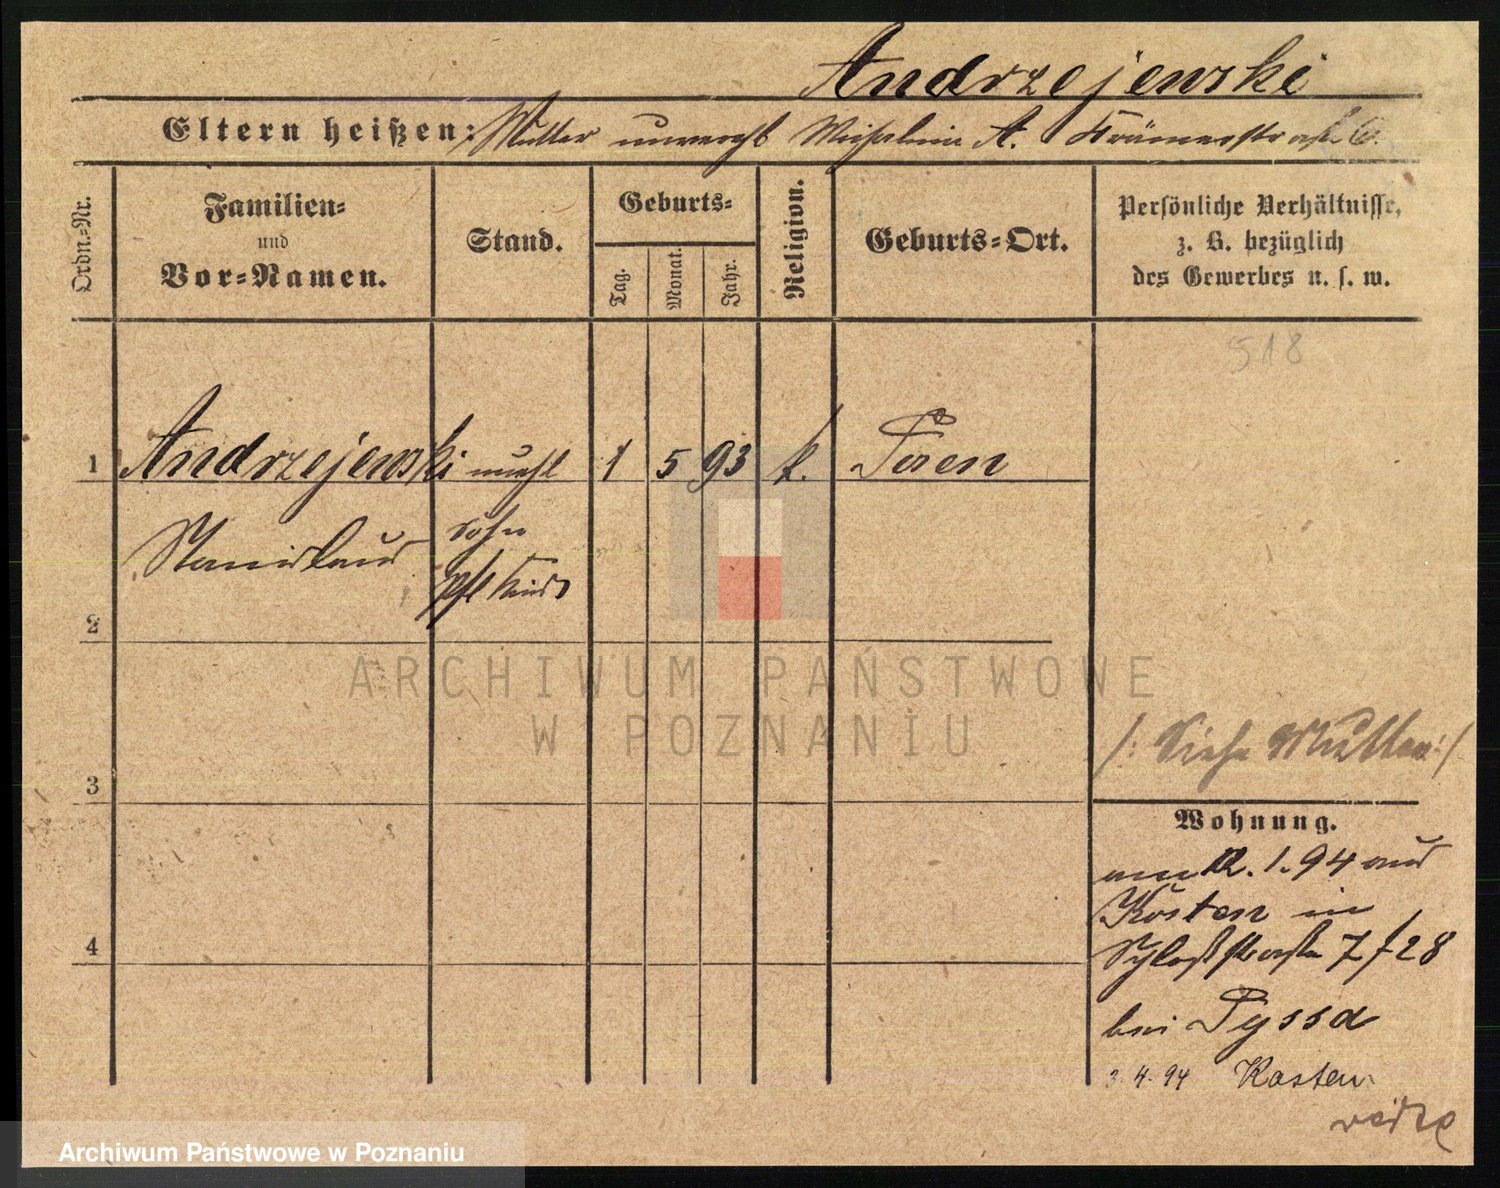 Andrzejewski
Eltern heißen: Mutter unverehl. A.
Ordn.-Nr.
Familien-
und
Vor-Namen.
Stand.
Geburts-
Tag.
Monat.
Jahr.
Religion.
Geburts-Ort.
Persönliche Verhältnisse,
z. B. bezüglich
des Gewerbes u. s. w.
518
1 Andrzejewski unehl 1 5 93 k.
Stanislaus
sohn
Kind
2
ARCHIWUM PAŃSTWOWE
W POZNANIU
3
/: Siehe Mutter :/
Wohnung.
1.94 aus
Kosten in
Schloßstraße 7/28
bei Pyssa
4
3.4.94 Kosten
Archiwum Państwowe w Poznaniu